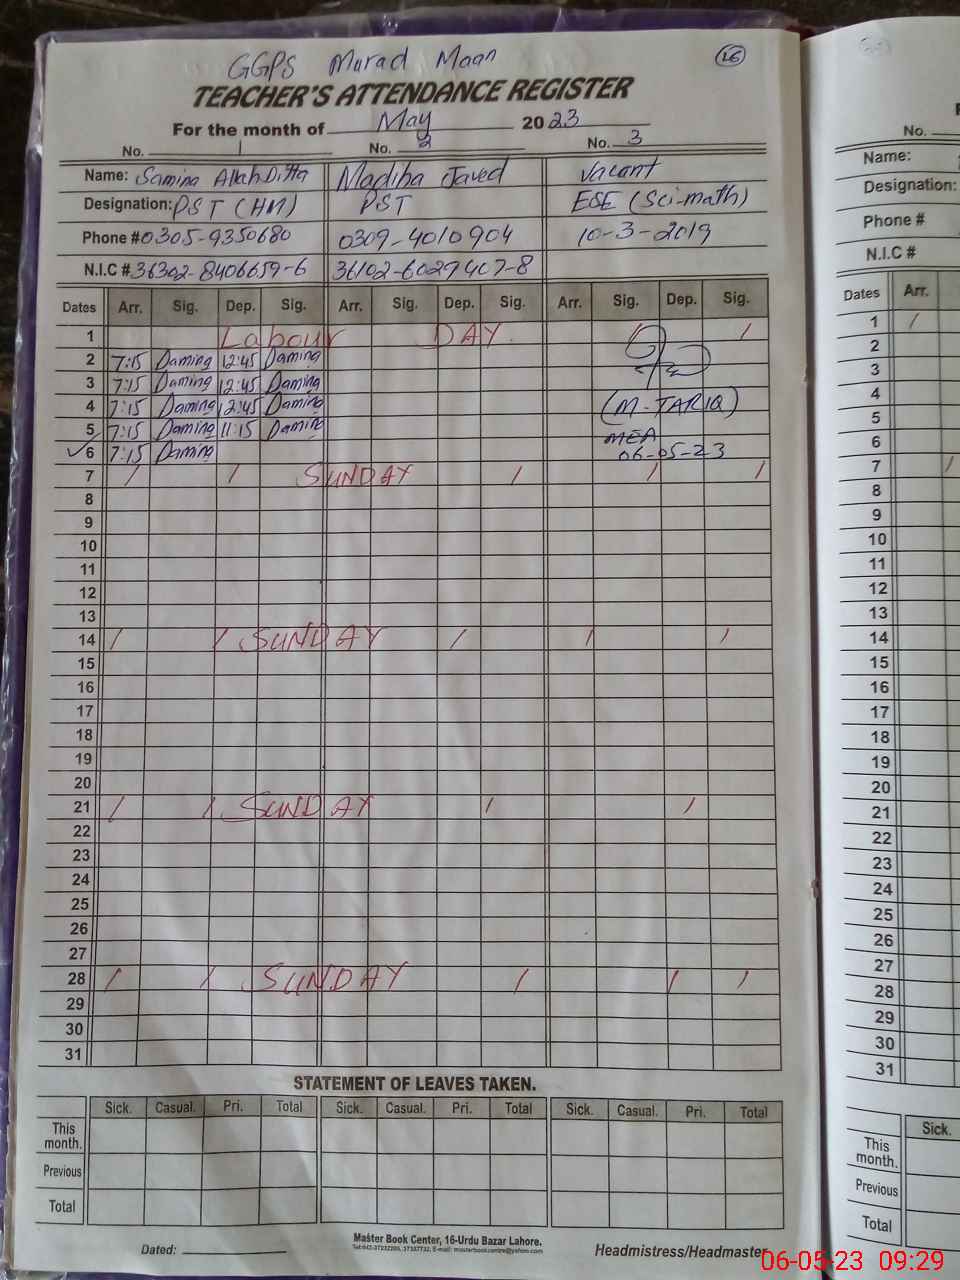 GGPS Murad Maan
26
TEACHER'S ATTENDANCE REGISTER
For the month of May 2023
No. 1 No. 2 No. 3
Name: Samina Allah Ditta Madiha Javed Vacant
Designation: PST (HM) PST ESE (Sci-math)
Phone # 0305-9350680 0309-4010904 10-3-2019
N.I.C # 36302-8406659-6 36102-6029407-8
Dates Arr. Sig. Dep. Sig. Arr. Sig. Dep. Sig. Arr. Sig. Dep. Sig.
1 Labour DAY
2 7:15 12:45
3 7:15 12:45
4 7:15 12:45 (M-TARIQ)
5 7:15 11:15 MEA
6 7:15 06-05-23
7 SUNDAY
8
9
10
11
12
13
14 SUNDAY
15
16
17
18
19
20
21 SUNDAY
22
23
24
25
26
27
28 SUNDAY
29
30
31
STATEMENT OF LEAVES TAKEN.
Sick. Casual. Pri. Total Sick. Casual. Pri. Total Sick. Casual. Pri. Total
This month.
Previous
Total
Dated:
Master Book Center, 16-Urdu Bazar Lahore.
Headmistress/Headmaster
No.
Name:
Designation:
Phone #
N.I.C #
Dates Arr.
1
2
3
4
5
6
7
8
9
10
11
12
13
14
15
16
17
18
19
20
21
22
23
24
25
26
27
28
29
30
31
Sick.
This month.
Previous
Total
06-05-23 09:29